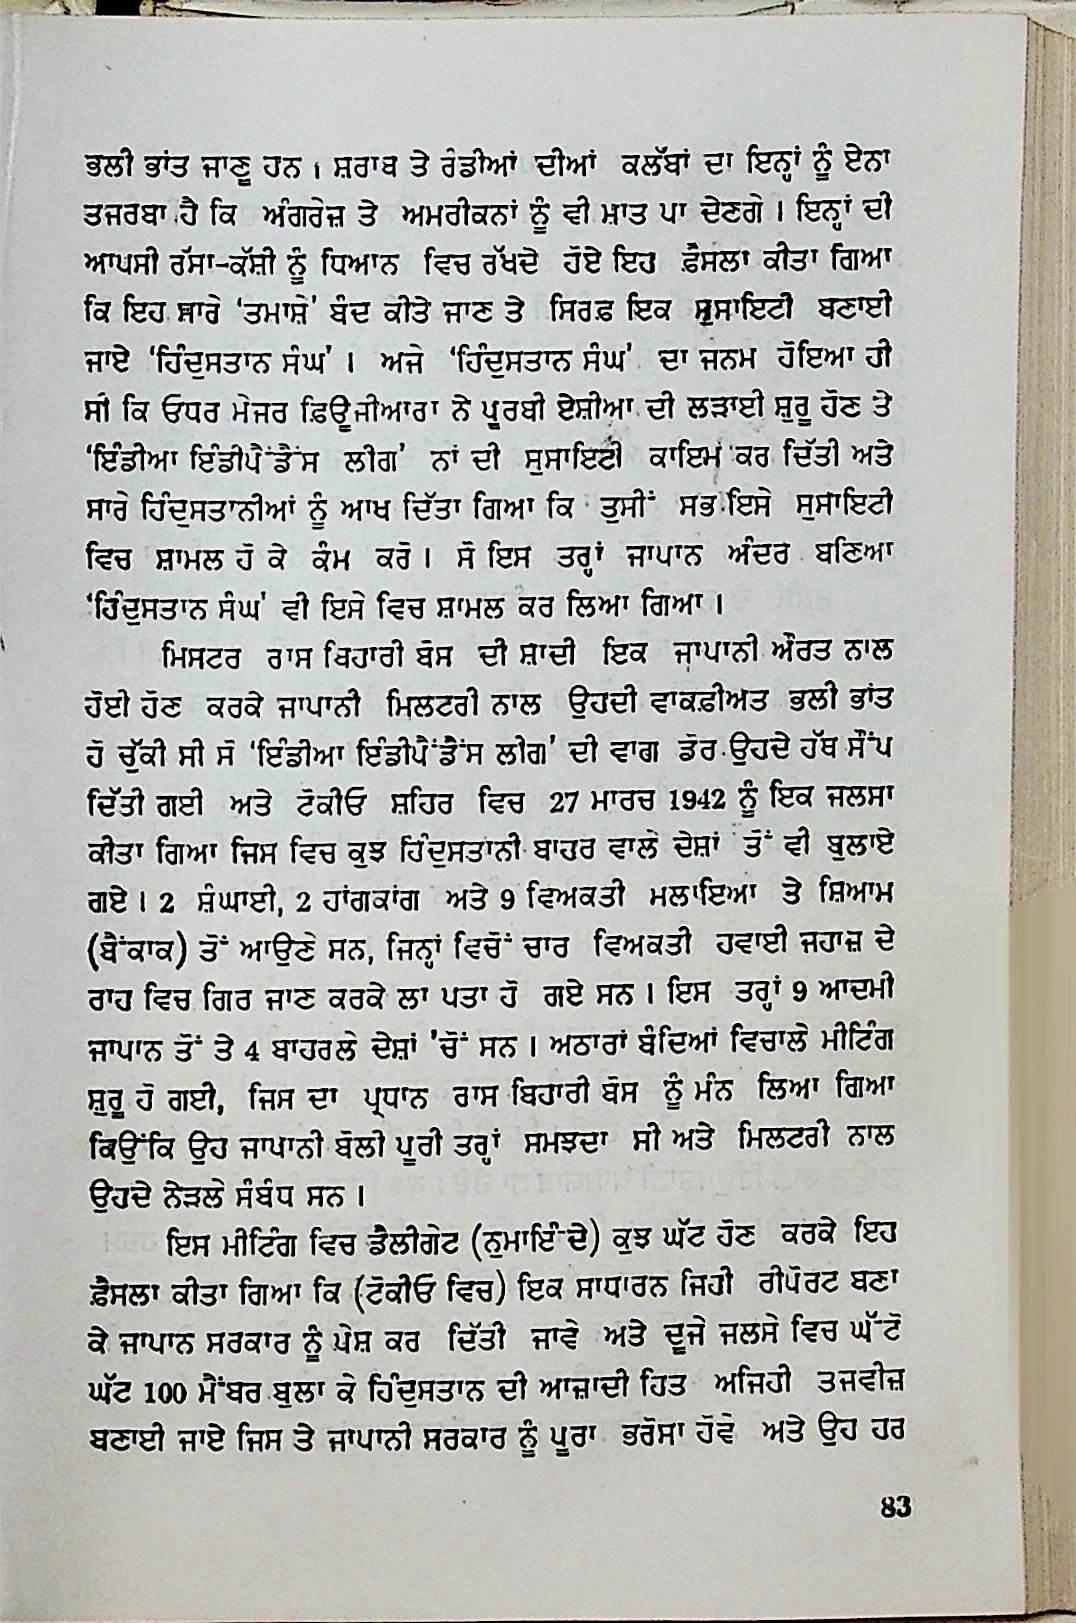 ਭਲੀ ਭਾਂਤ ਜਾਣੂ ਹਨ । ਸ਼ਰਾਬ ਤੇ ਰੰਡੀਆਂ ਦੀਆਂ ਕਲੱਬਾਂ ਦਾ ਇਨ੍ਹਾਂ ਨੂੰ ਏਨਾ
ਤਜਰਬਾ ਹੈ ਕਿ ਅੰਗਰੇਜ਼ ਤੇ ਅਮਰੀਕਨਾਂ ਨੂੰ ਵੀ ਮਾਤ ਪਾ ਦੇਣਗੇ । ਇਨ੍ਹਾਂ ਦੀ
ਆਪਸੀ ਰੱਸਾ-ਕੱਸ਼ੀ ਨੂੰ ਧਿਆਨ ਵਿਚ ਰੱਖਦੇ ਹੋਏ ਇਹ ਫ਼ੈਸਲਾ ਕੀਤਾ ਗਿਆ
ਕਿ ਇਹ ਸਾਰੇ ‘ਤਮਾਸ਼ੇ’ ਬੰਦ ਕੀਤੇ ਜਾਣ ਤੇ ਸਿਰਫ਼ ਇਕ ਸੁਸਾਇਟੀ ਬਣਾਈ
ਜਾਏ ‘ਹਿੰਦੁਸਤਾਨ ਸੰਘ’ । ਅਜੇ ‘ਹਿੰਦੁਸਤਾਨ ਸੰਘ’ ਦਾ ਜਨਮ ਹੋਇਆ ਹੀ
ਸੀ ਕਿ ਓਧਰ ਮੇਜਰ ਫ਼ਿਊਜੀਆਰਾ ਨੇ ਪੂਰਬੀ ਏਸ਼ੀਆ ਦੀ ਲੜਾਈ ਸ਼ੁਰੂ ਹੋਣ ਤੇ
‘ਇੰਡੀਆ ਇੰਡੀਪੈਂਡੈਂਸ ਲੀਗ’ ਨਾਂ ਦੀ ਸੁਸਾਇਟੀ ਕਾਇਮ ਕਰ ਦਿੱਤੀ ਅਤੇ
ਸਾਰੇ ਹਿੰਦੁਸਤਾਨੀਆਂ ਨੂੰ ਆਖ ਦਿੱਤਾ ਗਿਆ ਕਿ ਤੁਸੀਂ ਸਭ ਇਸੇ ਸੁਸਾਇਟੀ
ਵਿਚ ਸ਼ਾਮਲ ਹੋ ਕੇ ਕੰਮ ਕਰੋ । ਸੋ ਇਸ ਤਰ੍ਹਾਂ ਜਾਪਾਨ ਅੰਦਰ ਬਣਿਆ
‘ਹਿੰਦੁਸਤਾਨ ਸੰਘ’ ਵੀ ਇਸੇ ਵਿਚ ਸ਼ਾਮਲ ਕਰ ਲਿਆ ਗਿਆ ।
ਮਿਸਟਰ ਰਾਸ ਬਿਹਾਰੀ ਬੋਸ ਦੀ ਸ਼ਾਦੀ ਇਕ ਜਾਪਾਨੀ ਔਰਤ ਨਾਲ
ਹੋਈ ਹੋਣ ਕਰਕੇ ਜਾਪਾਨੀ ਮਿਲਟਰੀ ਨਾਲ ਉਹਦੀ ਵਾਕਫ਼ੀਅਤ ਭਲੀ ਭਾਂਤ
ਹੋ ਚੁੱਕੀ ਸੀ ਸੋ ‘ਇੰਡੀਆ ਇੰਡੀਪੈਂਡੈਂਸ ਲੀਗ’ ਦੀ ਵਾਗ ਡੋਰ ਉਹਦੇ ਹੱਥ ਸੌਂਪ
ਦਿੱਤੀ ਗਈ ਅਤੇ ਟੋਕੀਓ ਸ਼ਹਿਰ ਵਿਚ 27 ਮਾਰਚ 1942 ਨੂੰ ਇਕ ਜਲਸਾ
ਕੀਤਾ ਗਿਆ ਜਿਸ ਵਿਚ ਕੁਝ ਹਿੰਦੁਸਤਾਨੀ ਬਾਹਰ ਵਾਲੇ ਦੇਸ਼ਾਂ ਤੋਂ ਵੀ ਬੁਲਾਏ
ਗਏ । 2 ਸ਼ੰਘਾਈ, 2 ਹਾਂਗਕਾਂਗ ਅਤੇ 9 ਵਿਅਕਤੀ ਮਲਾਇਆ ਤੇ ਸ਼ਿਆਮ
(ਬੈਂਕਾਕ) ਤੋਂ ਆਉਣੇ ਸਨ, ਜਿਨ੍ਹਾਂ ਵਿਚੋਂ ਚਾਰ ਵਿਅਕਤੀ ਹਵਾਈ ਜਹਾਜ਼ ਦੇ
ਰਾਹ ਵਿਚ ਗਿਰ ਜਾਣ ਕਰਕੇ ਲਾ ਪਤਾ ਹੋ ਗਏ ਸਨ । ਇਸ ਤਰ੍ਹਾਂ 9 ਆਦਮੀ
ਜਾਪਾਨ ਤੋਂ ਤੇ 4 ਬਾਹਰਲੇ ਦੇਸ਼ਾਂ ’ਚੋਂ ਸਨ । ਅਠਾਰਾਂ ਬੰਦਿਆਂ ਵਿਚਾਲੇ ਮੀਟਿੰਗ
ਸ਼ੁਰੂ ਹੋ ਗਈ, ਜਿਸ ਦਾ ਪ੍ਰਧਾਨ ਰਾਸ ਬਿਹਾਰੀ ਬੋਸ ਨੂੰ ਮੰਨ ਲਿਆ ਗਿਆ
ਕਿਉਂਕਿ ਉਹ ਜਾਪਾਨੀ ਬੋਲੀ ਪੂਰੀ ਤਰ੍ਹਾਂ ਸਮਝਦਾ ਸੀ ਅਤੇ ਮਿਲਟਰੀ ਨਾਲ
ਉਹਦੇ ਨੇੜਲੇ ਸੰਬੰਧ ਸਨ ।
ਇਸ ਮੀਟਿੰਗ ਵਿਚ ਡੈਲੀਗੇਟ (ਨੁਮਾਇੰਦੇ) ਕੁਝ ਘੱਟ ਹੋਣ ਕਰਕੇ ਇਹ
ਫ਼ੈਸਲਾ ਕੀਤਾ ਗਿਆ ਕਿ (ਟੋਕੀਓ ਵਿਚ) ਇਕ ਸਾਧਾਰਨ ਜਿਹੀ ਰੀਪੋਰਟ ਬਣਾ
ਕੇ ਜਾਪਾਨ ਸਰਕਾਰ ਨੂੰ ਪੇਸ਼ ਕਰ ਦਿੱਤੀ ਜਾਵੇ ਅਤੇ ਦੂਜੇ ਜਲਸੇ ਵਿਚ ਘੱਟੋ
ਘੱਟ 100 ਮੈਂਬਰ ਬੁਲਾ ਕੇ ਹਿੰਦੁਸਤਾਨ ਦੀ ਆਜ਼ਾਦੀ ਹਿਤ ਅਜਿਹੀ ਤਜਵੀਜ਼
ਬਣਾਈ ਜਾਏ ਜਿਸ ਤੇ ਜਾਪਾਨੀ ਸਰਕਾਰ ਨੂੰ ਪੂਰਾ ਭਰੋਸਾ ਹੋਵੇ ਅਤੇ ਉਹ ਹਰ
83